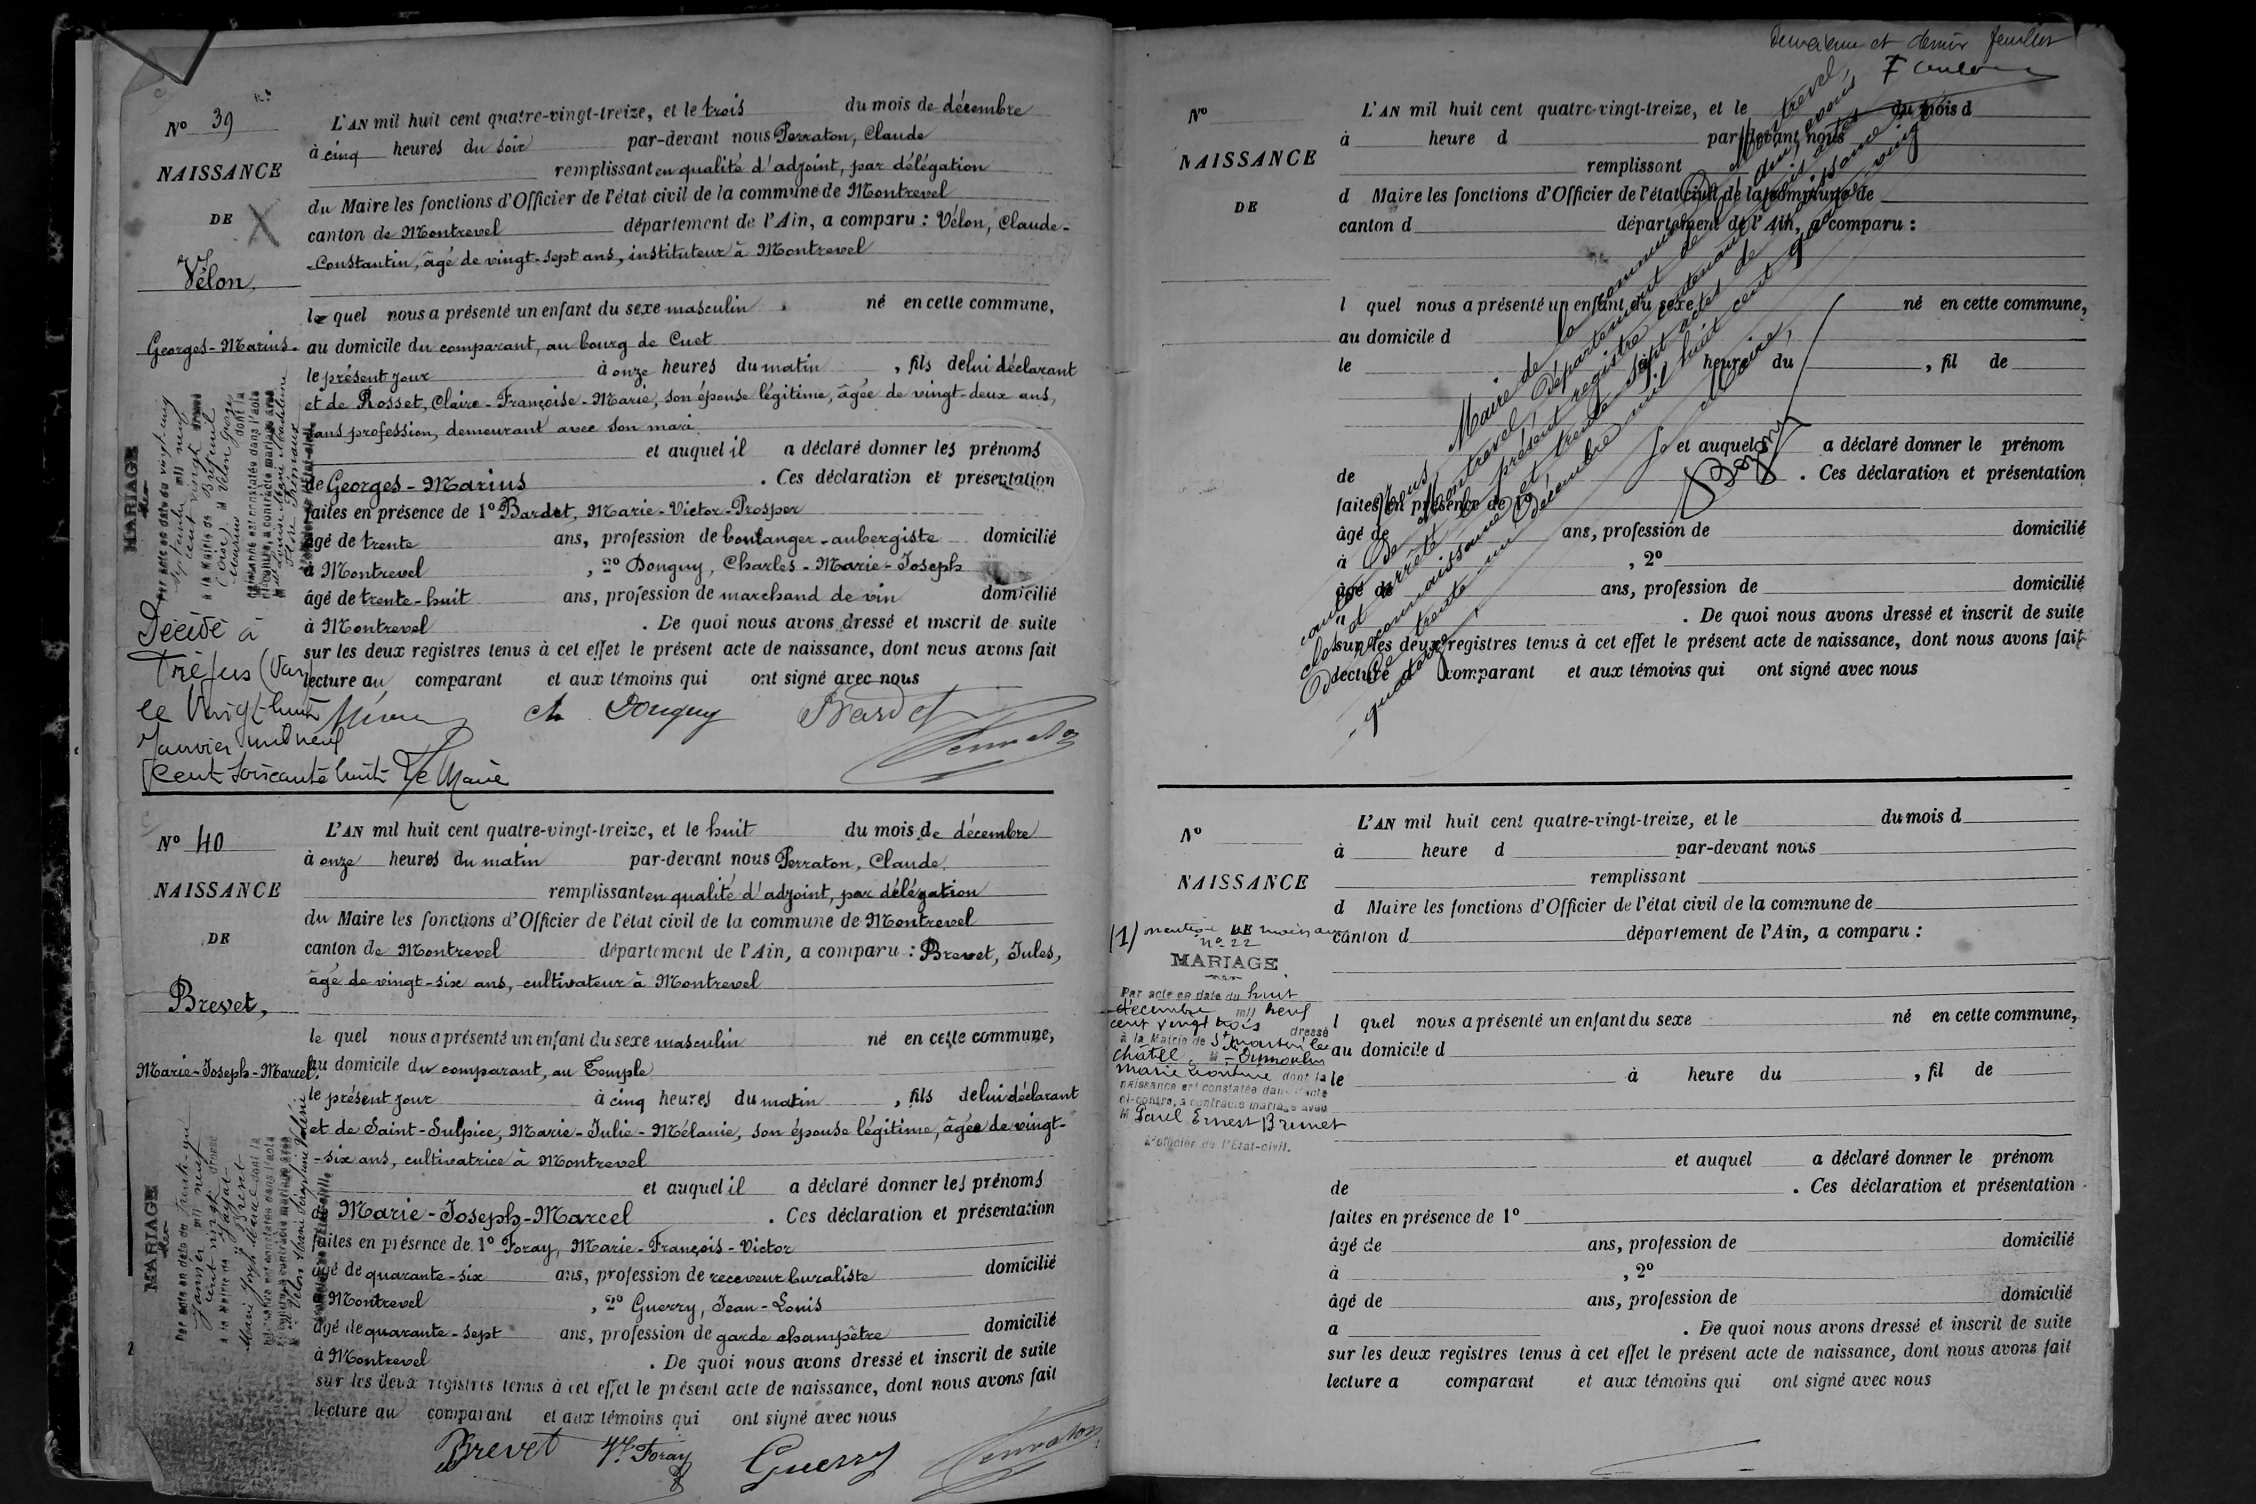 Nº 39
NAISSANCE
DE
Vélon,
Georges-Marius.
L'AN mil huit cent quatre-vingt-treize, et le trois du mois de décembre
à cinq heures du soir par-devant nous Perraton, Claude
remplissant en qualité d'adjoint, par délégation
du Maire les fonctions d'Officier de l'état civil de la commune de Montrevel
canton de Montrevel département de l'Ain, a comparu : Vélon, Claude-
-Constantin, âgé de vingt-sept ans, instituteur à Montrevel
le quel nous a présenté un enfant du sexe masculin né en cette commune,
au domicile du comparant, au bourg de Cuet
le présent jour à onze heures du matin, fils de lui déclarant
et de Rosset, Claire-Françoise-Marie, son épouse légitime, âgée de vingt-deux ans,
sans profession, demeurant avec son mari
et auquel il a déclaré donner les prénoms
de Georges-Marius. Ces déclaration et présentation
faites en présence de 1º Bardet, Marie-Victor-Prosper
âgé de trente ans, profession de boulanger-aubergiste domicilié
à Montrevel, 2º Donguy, Charles-Marie-Joseph
âgé de trente-huit ans, profession de marchand de vin domicilié
à Montrevel. De quoi nous avons dressé et inscrit de suite
sur les deux registres tenus à cet effet le présent acte de naissance, dont nous avons fait
lecture au comparant et aux témoins qui ont signé avec nous
Ch Donguy Bardet
MARIAGE
Par acte en date du vingt cinq
septembre mil neuf
cent vingt dressé
à la Mairie de
Vélon George
Marius dont la
naissance est constatée dans l'acte
ci-contre, a contracté mariage avec
Décédé à
Fréjus (Var)
le Vingt huit
Janvier mil neuf
cent soixante huit Le Maire
Nº 40
NAISSANCE
DE
Brevet,
Marie-Joseph-Marcel.
L'AN mil huit cent quatre-vingt-treize, et le huit du mois de décembre
à onze heures du matin par-devant nous Perraton, Claude
remplissant en qualité d'adjoint, par délégation
du Maire les fonctions d'Officier de l'état civil de la commune de Montrevel
canton de Montrevel département de l'Ain, a comparu : Brevet, Jules,
âgé de vingt-six ans, cultivateur à Montrevel
le quel nous a présenté un enfant du sexe masculin né en cette commune,
au domicile du comparant, au Temple
le présent jour à cinq heures du matin, fils de lui déclarant
et de Saint-Sulpice, Marie-Julie-Mélanie, son épouse légitime, âgée de vingt-
-six ans, cultivatrice à Montrevel
et auquel il a déclaré donner les prénoms
de Marie-Joseph-Marcel. Ces déclaration et présentation
faites en présence de 1º Foray, Marie-François-Victor
âgé de quarante-six ans, profession de receveur buraliste domicilié
à Montrevel, 2º Guerry, Jean-Louis
âgé de quarante-sept ans, profession de garde champêtre domicilié
à Montrevel. De quoi nous avons dressé et inscrit de suite
sur les deux registres tenus à cet effet le présent acte de naissance, dont nous avons fait
lecture au comparant et aux témoins qui ont signé avec nous
Brevet Foray Guerry Perraton
MARIAGE
Par acte en date du trente un
janvier mil neuf
cent vingt dressé
à la Mairie de Jayat
M Brevet
Marie Joseph Marcel dont la
naissance est constatée dans l'acte
ci-contre, a contracté mariage avec
Deuxième et dernier feuillet
Nº
NAISSANCE
DE
L'AN mil huit cent quatre-vingt-treize, et le du mois d
à heure d par-devant nous
remplissant
d Maire les fonctions d'Officier de l'état civil de la commune de
canton d département de l'Ain, a comparu :
l quel nous a présenté un enfant du sexe né en cette commune,
au domicile d
le à heure du, fil de
et auquel a déclaré donner le prénom
de. Ces déclaration et présentation
faites en présence de 1º
âgé de ans, profession de domicilié
à, 2º
âgé de ans, profession de domicilié
à. De quoi nous avons dressé et inscrit de suite
sur les deux registres tenus à cet effet le présent acte de naissance, dont nous avons fait
lecture a comparant et aux témoins qui ont signé avec nous
Nous, Maire de la commune de Montrevel,
canton de Montrevel, Département de l'Ain, avons
clos et arrêté le présent registre contenant
de naissance
trente un Décembre mil huit cent quatre-vingt
-quatorze,
Le Maire,
Nº
NAISSANCE
DE
L'AN mil huit cent quatre-vingt-treize, et le du mois d
à heure d par-devant nous
remplissant
d Maire les fonctions d'Officier de l'état civil de la commune de
canton d département de l'Ain, a comparu :
l quel nous a présenté un enfant du sexe né en cette commune,
au domicile d
le à heure du, fil de
et auquel a déclaré donner le prénom
de. Ces déclaration et présentation
faites en présence de 1º
âgé de ans, profession de domicilié
à, 2º
âgé de ans, profession de domicilié
a. De quoi nous avons dressé et inscrit de suite
sur les deux registres tenus à cet effet le présent acte de naissance, dont nous avons fait
lecture a comparant et aux témoins qui ont signé avec nous
(1) mention
nº 22
MARIAGE
Par acte en date du huit
décembre mil neuf
cent vingt trois dressé
à la Mairie de St Martin le
châtel, M Dumoulin
Marie dont la
naissance est constatée dans l'acte
ci-contre, a contracté mariage avec
M Paul Ernest Brunet
L'officier de l'Etat-civil.